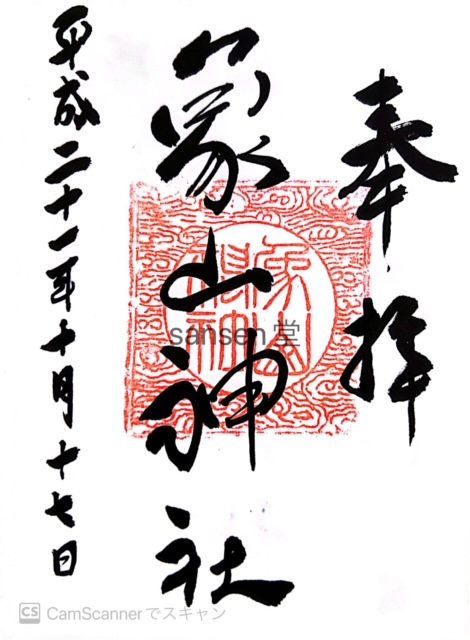 奉拝
象山神社
象山
神社
平成二十一年十月十七日
sansen堂
CS CamScannerでスキャン